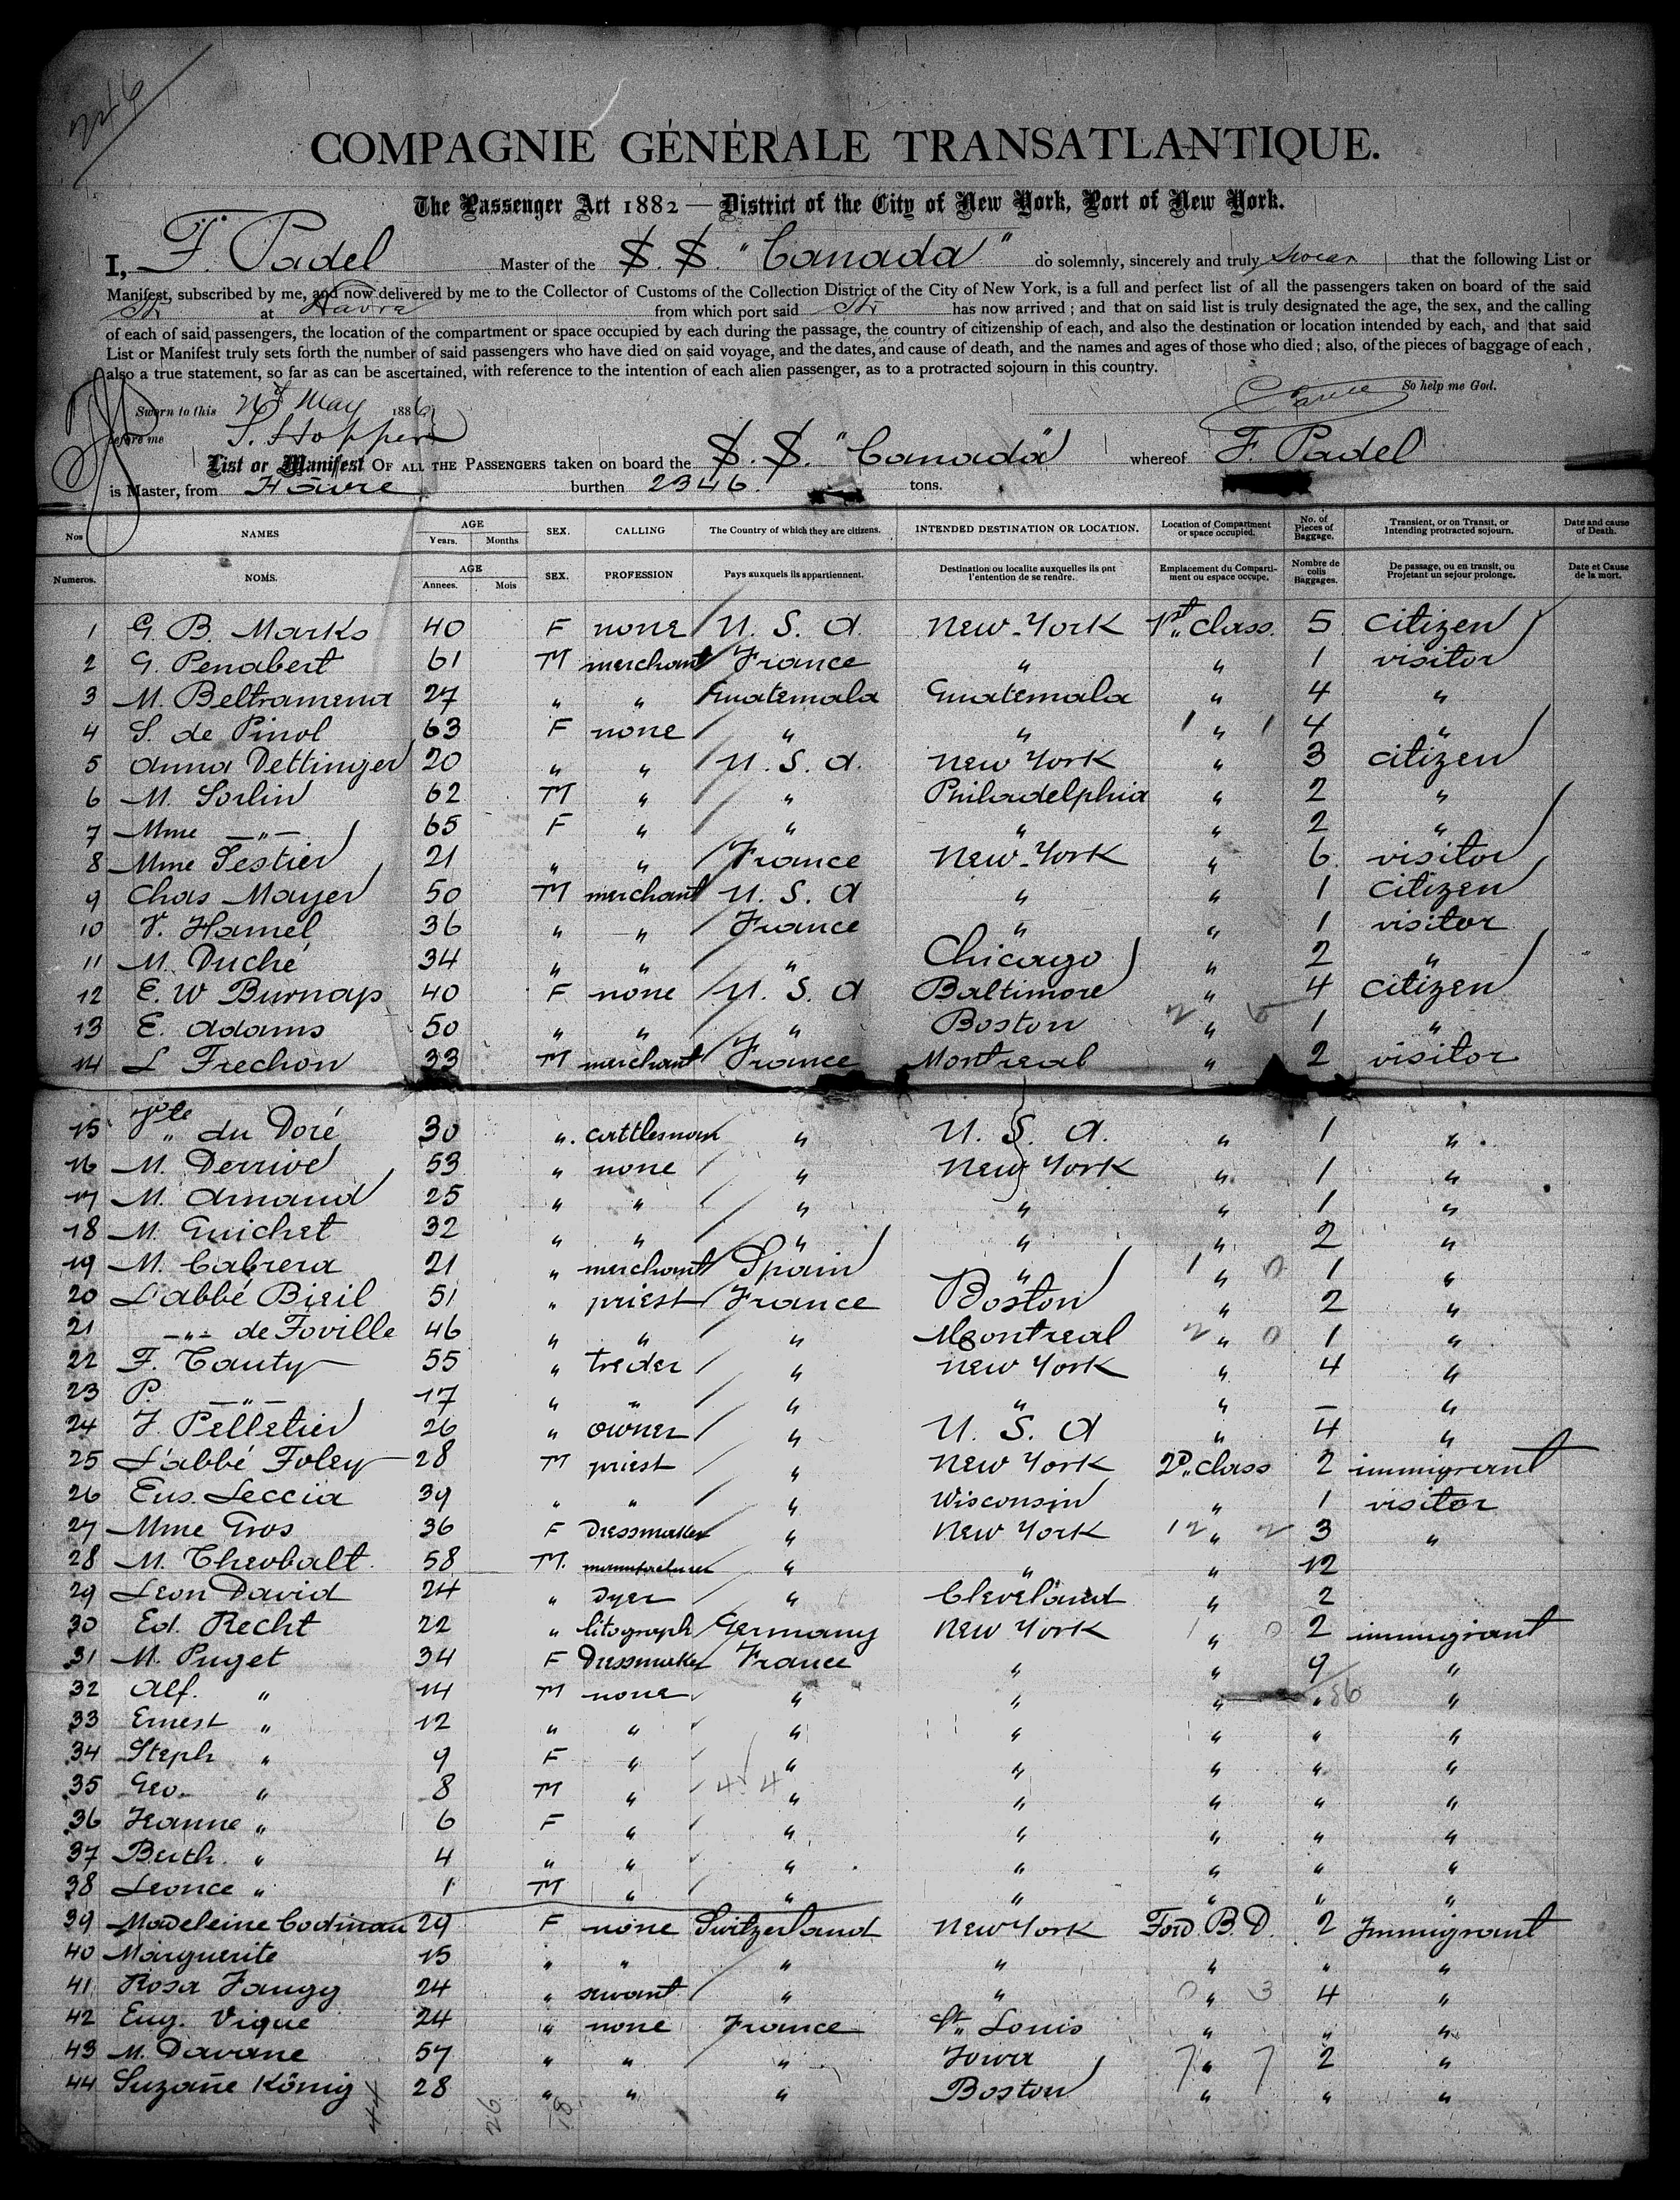 246
COMPAGNIE GÉNÉRALE TRANSATLANTIQUE.
The Passenger Act 1882 — District of the City of New York, Port of New York.
I, F. Padel Master of the S.S. "Canada" do solemnly, sincerely and truly swear that the following List or
Manifest, subscribed by me, and now delivered by me to the Collector of Customs of the Collection District of the City of New York, is a full and perfect list of all the passengers taken on board of the said
Str at Havre from which port said Str has now arrived; and that on said list is truly designated the age, the sex, and the calling
of each of said passengers, the location of the compartment or space occupied by each during the passage, the country of citizenship of each, and also the destination or location intended by each, and that said
List or Manifest truly sets forth the number of said passengers who have died on said voyage, and the dates, and cause of death, and the names and ages of those who died; also, of the pieces of baggage of each,
also a true statement, so far as can be ascertained, with reference to the intention of each alien passenger, as to a protracted sojourn in this country.
So help me God.
Sworn to this May 1886
before me
List or Manifest OF ALL THE PASSENGERS taken on board the S.S. "Canada" whereof F. Padel
is Master, from Havre burthen 2346. tons.
Nos NAMES AGE Years. Months SEX. CALLING The Country of which they are citizens. INTENDED DESTINATION OR LOCATION. Location of Compartment or space occupied. No. of Pieces of Baggage. Transient, or on Transit, or Intending protracted sojourn. Date and cause of Death.
Numeros. NOMS. AGE Annees. Mois SEX. PROFESSION Pays auxquels ils appartiennent. Destination ou localite auxquelles ils ont l'entention de se rendre. Emplacement du Compartiment ou espace occupe. Nombre de colis Baggages. De passage, ou en transit, ou Projetant un sejour prolonge. Date et Cause de la mort.
1 G. B. Marks 40 F none U. S. A. New-York 1st class. 5 citizen
2 G. Penabert 61 M merchant France " " 1 visitor
3 M. Beltramena 27 " " Guatemala Guatemala " 4 "
4 S. de Pinol 63 F none " " " 4 "
5 Anna Dettinger 20 " " U. S. A. New York " 3 citizen
6 M. Sorlin 62 M " " Philadelphia " 2 "
7 Mme —"— 65 F " " " " 2 "
8 Mme Testier 21 " " France New-York " 6 visitor
9 Chas Mayer 50 M merchant U. S. A " " 1 citizen
10 V. Hamel 36 " " France " " 1 visitor
11 M. Duché 34 " " " Chicago " 2 "
12 E. W Burnap 40 F none U. S. A Baltimore " 4 citizen
13 E. Adams 50 " " " Boston " 1 "
14 L Frechon 33 M merchant France Montreal " 2 visitor
15 Vte du Doré 30 " cattleman " U. S. A. " 1 "
16 M. Derrivé 53 " none " New York " 1 "
17 M. Arnaud 25 " " " " " 1 "
18 M. Guichet 32 " " " " " 2 "
19 M. Cabrera 21 " merchant Spain " " 1 "
20 L'abbé Bieil 51 " priest France Boston " 2 "
21 —"— de Foville 46 " " " Montreal " 1 "
22 F. Tauty 55 " treder " New York " 4 "
23 P. —"— 17 " " " " " — "
24 J. Pelletier 26 " owner " U. S. A " 4 "
25 L'abbé Foley 28 M priest " New York 2d class 2 immigrant
26 Eus. Leccia 39 " " " Wisconsin " 1 visitor
27 Mme Gros 36 F Dressmaker " New York " 3 "
28 M. Theobalt. 58 M. manufacturer " " " 12
29 Leon David 24 " Dyer " Cleveland " 2
30 Ed. Recht 22 " litograph Germany New York " 2 immigrant
31 M. Puget 34 F Dressmaker France " " 9 "
32 Alf. " 14 M none " " " " "
33 Ernest " 12 " " " " " " "
34 Steph " 9 F " " " " " "
35 Geo. " 8 M " " " " " "
36 Jeanne " 6 F " " " " " "
37 Berth. " 4 " " " " " " "
38 Leonce " 1 M " " " " " "
39 Madeleine Codinau 29 F none Switzerland New York Forw. B. D. 2 Immigrant
40 Marguerite 15 " " " " " " "
41 Rosa Jaugy 24 " servant " " " 4 "
42 Eug. Vique 24 " none France St. Louis " " "
43 M. Davane 57 " " " Iowa " 2 "
44 Suzañe König 28 " " " Boston " " "
44 26 18